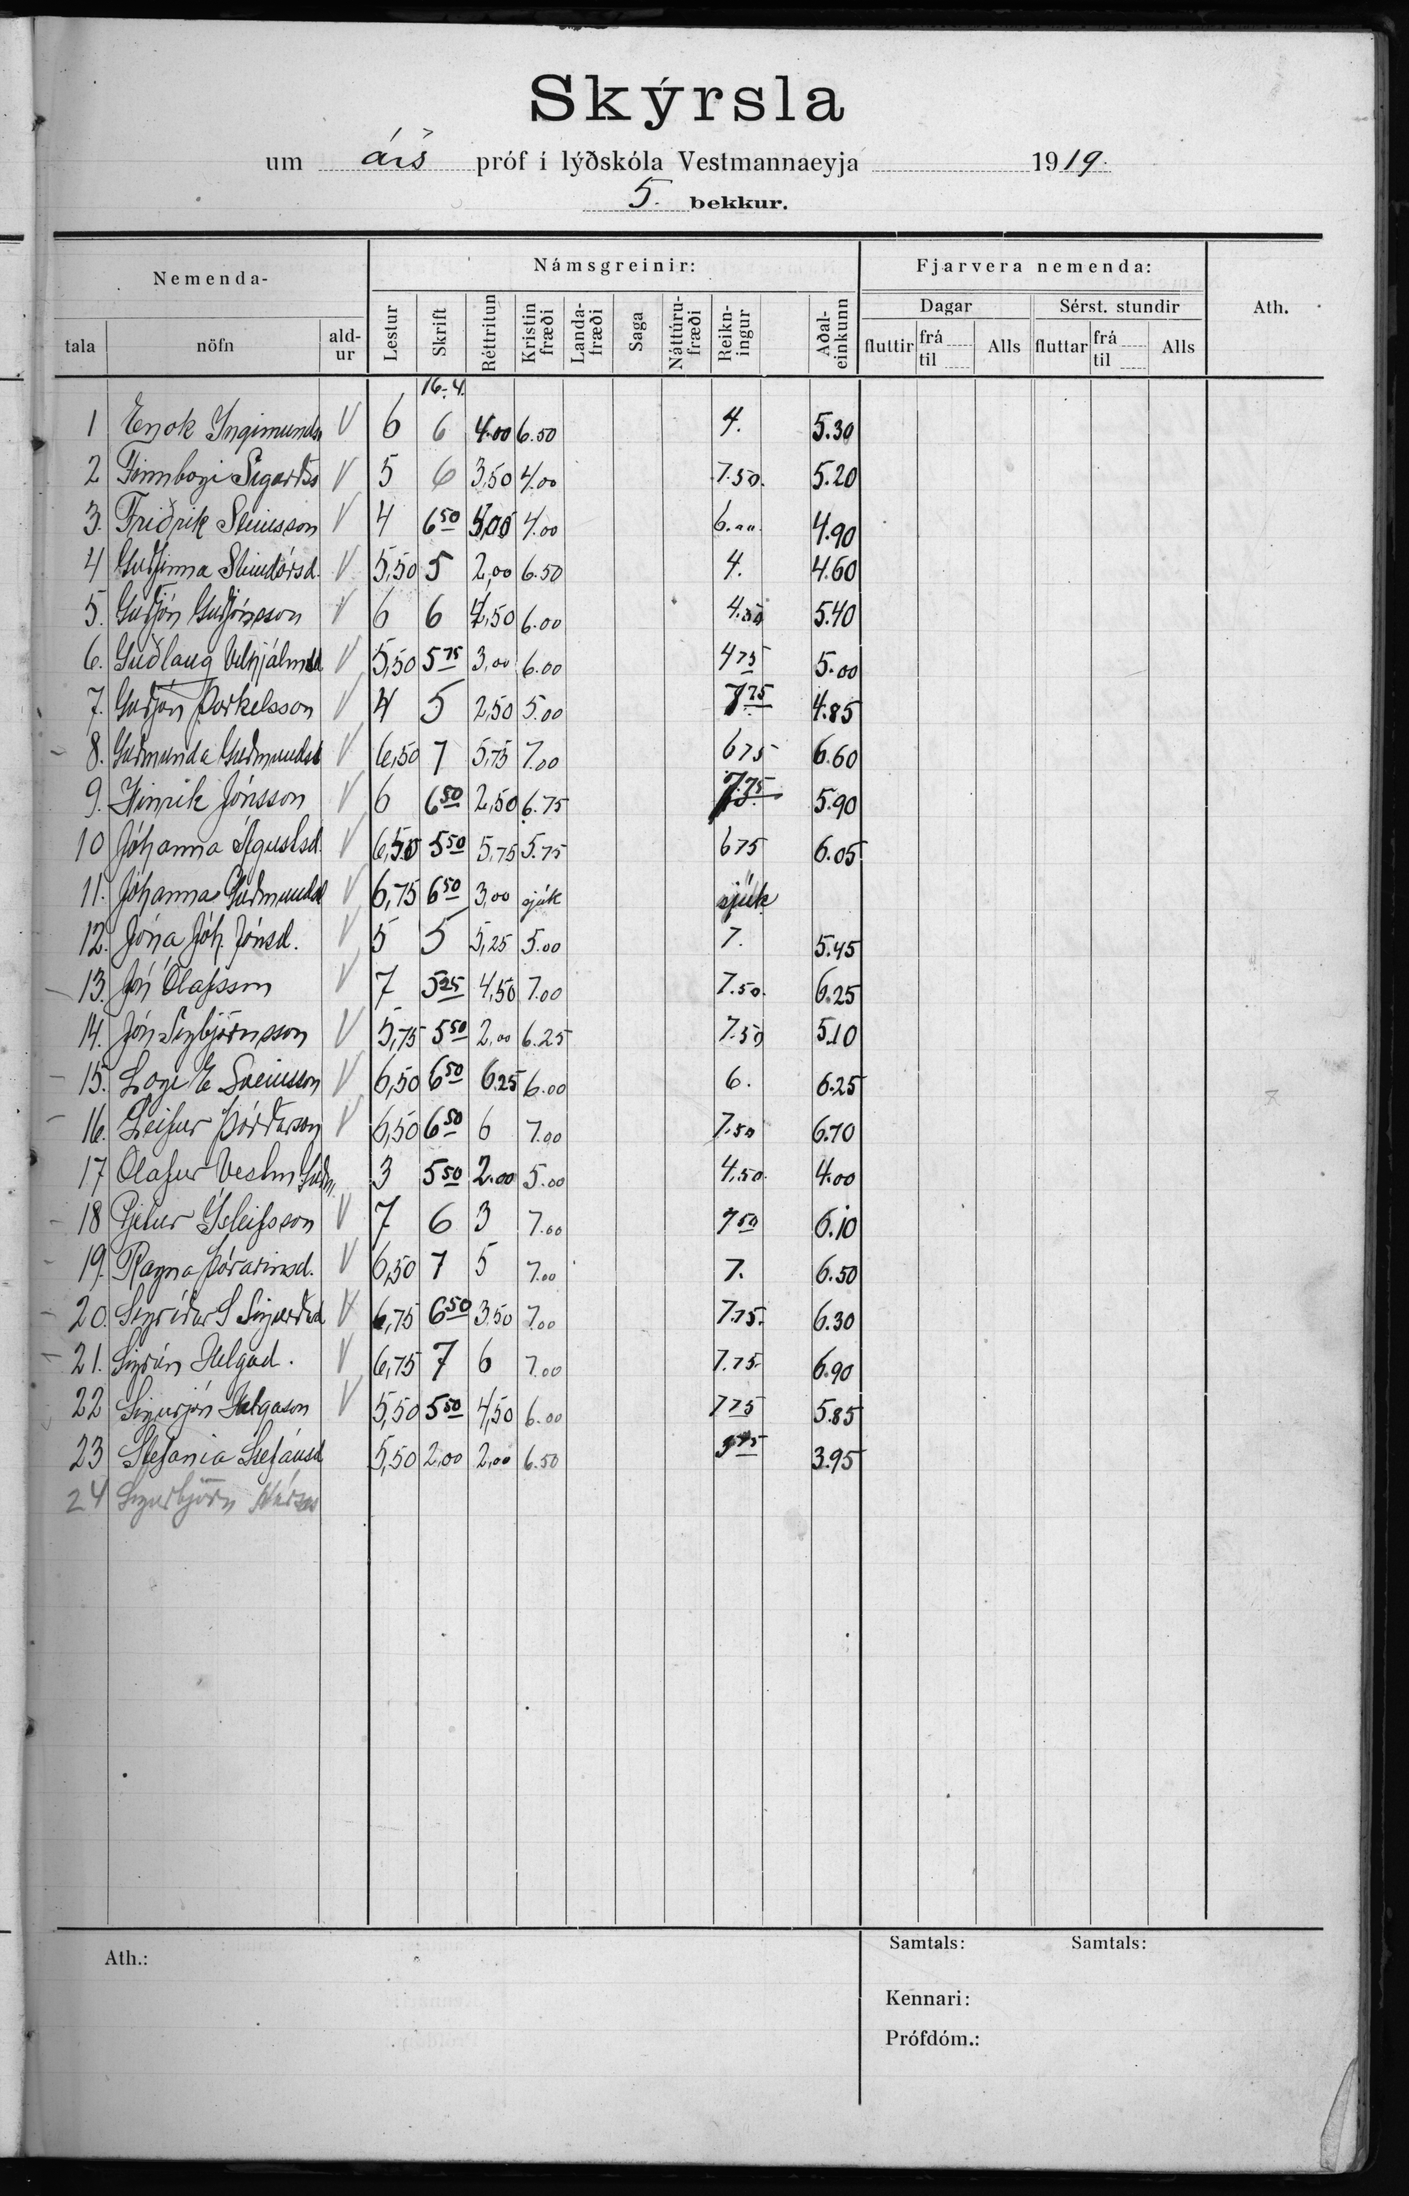 Skýrsla
um árs próf í lýðskóla Vestmannaeyja 1919.
5. bekkur.
Nemenda- Námsgreinir: Fjarvera nemenda: Ath.
tala nöfn ald-ur Lestur Skrift Réttritun Kristin fræði Landa-fræði Saga Náttúru-fræði Reikn-ingur Aðal-einkunn Dagar Sérst. stundir
fluttir frá til Alls fluttar frá til Alls
16.-4.
1 Enok Ingimunds V 6 6 4.00 6.50 4. 5.30
2 Finnbogi V 5 6 3,50 4.00 7.50. 5.20
3. Friðrik Steinsson V 4 6 50 4.00 6.00 4.90
4 Guðfinna Steindórsd. V 5,50 5 2,00 6.50 4. 4.60
5. Guðjón Guðjónsson V 6 6 4,50 6.00 4.50 5.40
6. Guðlaug Vilhjálmsd V 5,50 5 75 3,00 6.00 4 75 5.00
7. Guðjón Þorkelsson V 4 5 2,50 5.00 7 75 4.85
8. Guðmunda Guðmundsd V 6,50 7 5,75 7.00 6 75 6.60
9. Hinrik Jónsson V 6 6 50 2,50 6.75 7.75 5.90
10 Jóhanna Ágústsd. V 6,50 5 50 5,75 5.75 6 75 6.05
11. Jóhanna Guðmundsd V 6,75 6 50 3,00 sjúk sjúk
12. Jóna Jóh. Jónsd. V 5 5 5,25 5.00 7. 5.45
13. Jón Ólafsson V 7 5 25 4,50 7.00 7.50. 6.25
14. Jón Sigbjörnsson V 5,75 5 50 2,00 6.25 7.50 5.10
15. Loge E Sveinsson V 6,50 6 50 6.25 6.00 6. 6.25
16. Leifur Þórðarson V 6,50 6 50 6 7.00 7.50 6.70
17 Ólafur Vestm Guðm. 3 5 50 2.00 5.00 4,50. 4.00
18 Pjetur Ísleifsson V 7 6 3 7.00 7 50 6.10
19. Ragna Þórarinsd. V 6,50 7 5 7.00 7. 6.50
20. Sigríður S Sigurðard V 6,75 6 50 3.50 7.00 7.75. 6.30
21. Sigrún Helgad. V 6,75 7 6 7.00 7.75 6.90
22 Sigurjón Helgason V 5,50 5 50 4,50 6.00 7 75 5.85
23 Stefania Stefánsd 5,50 2,00 2,00 6.50 3.95
24 Sigurbjörn
Ath.: Samtals: Samtals:
Kennari:
Prófdóm.: